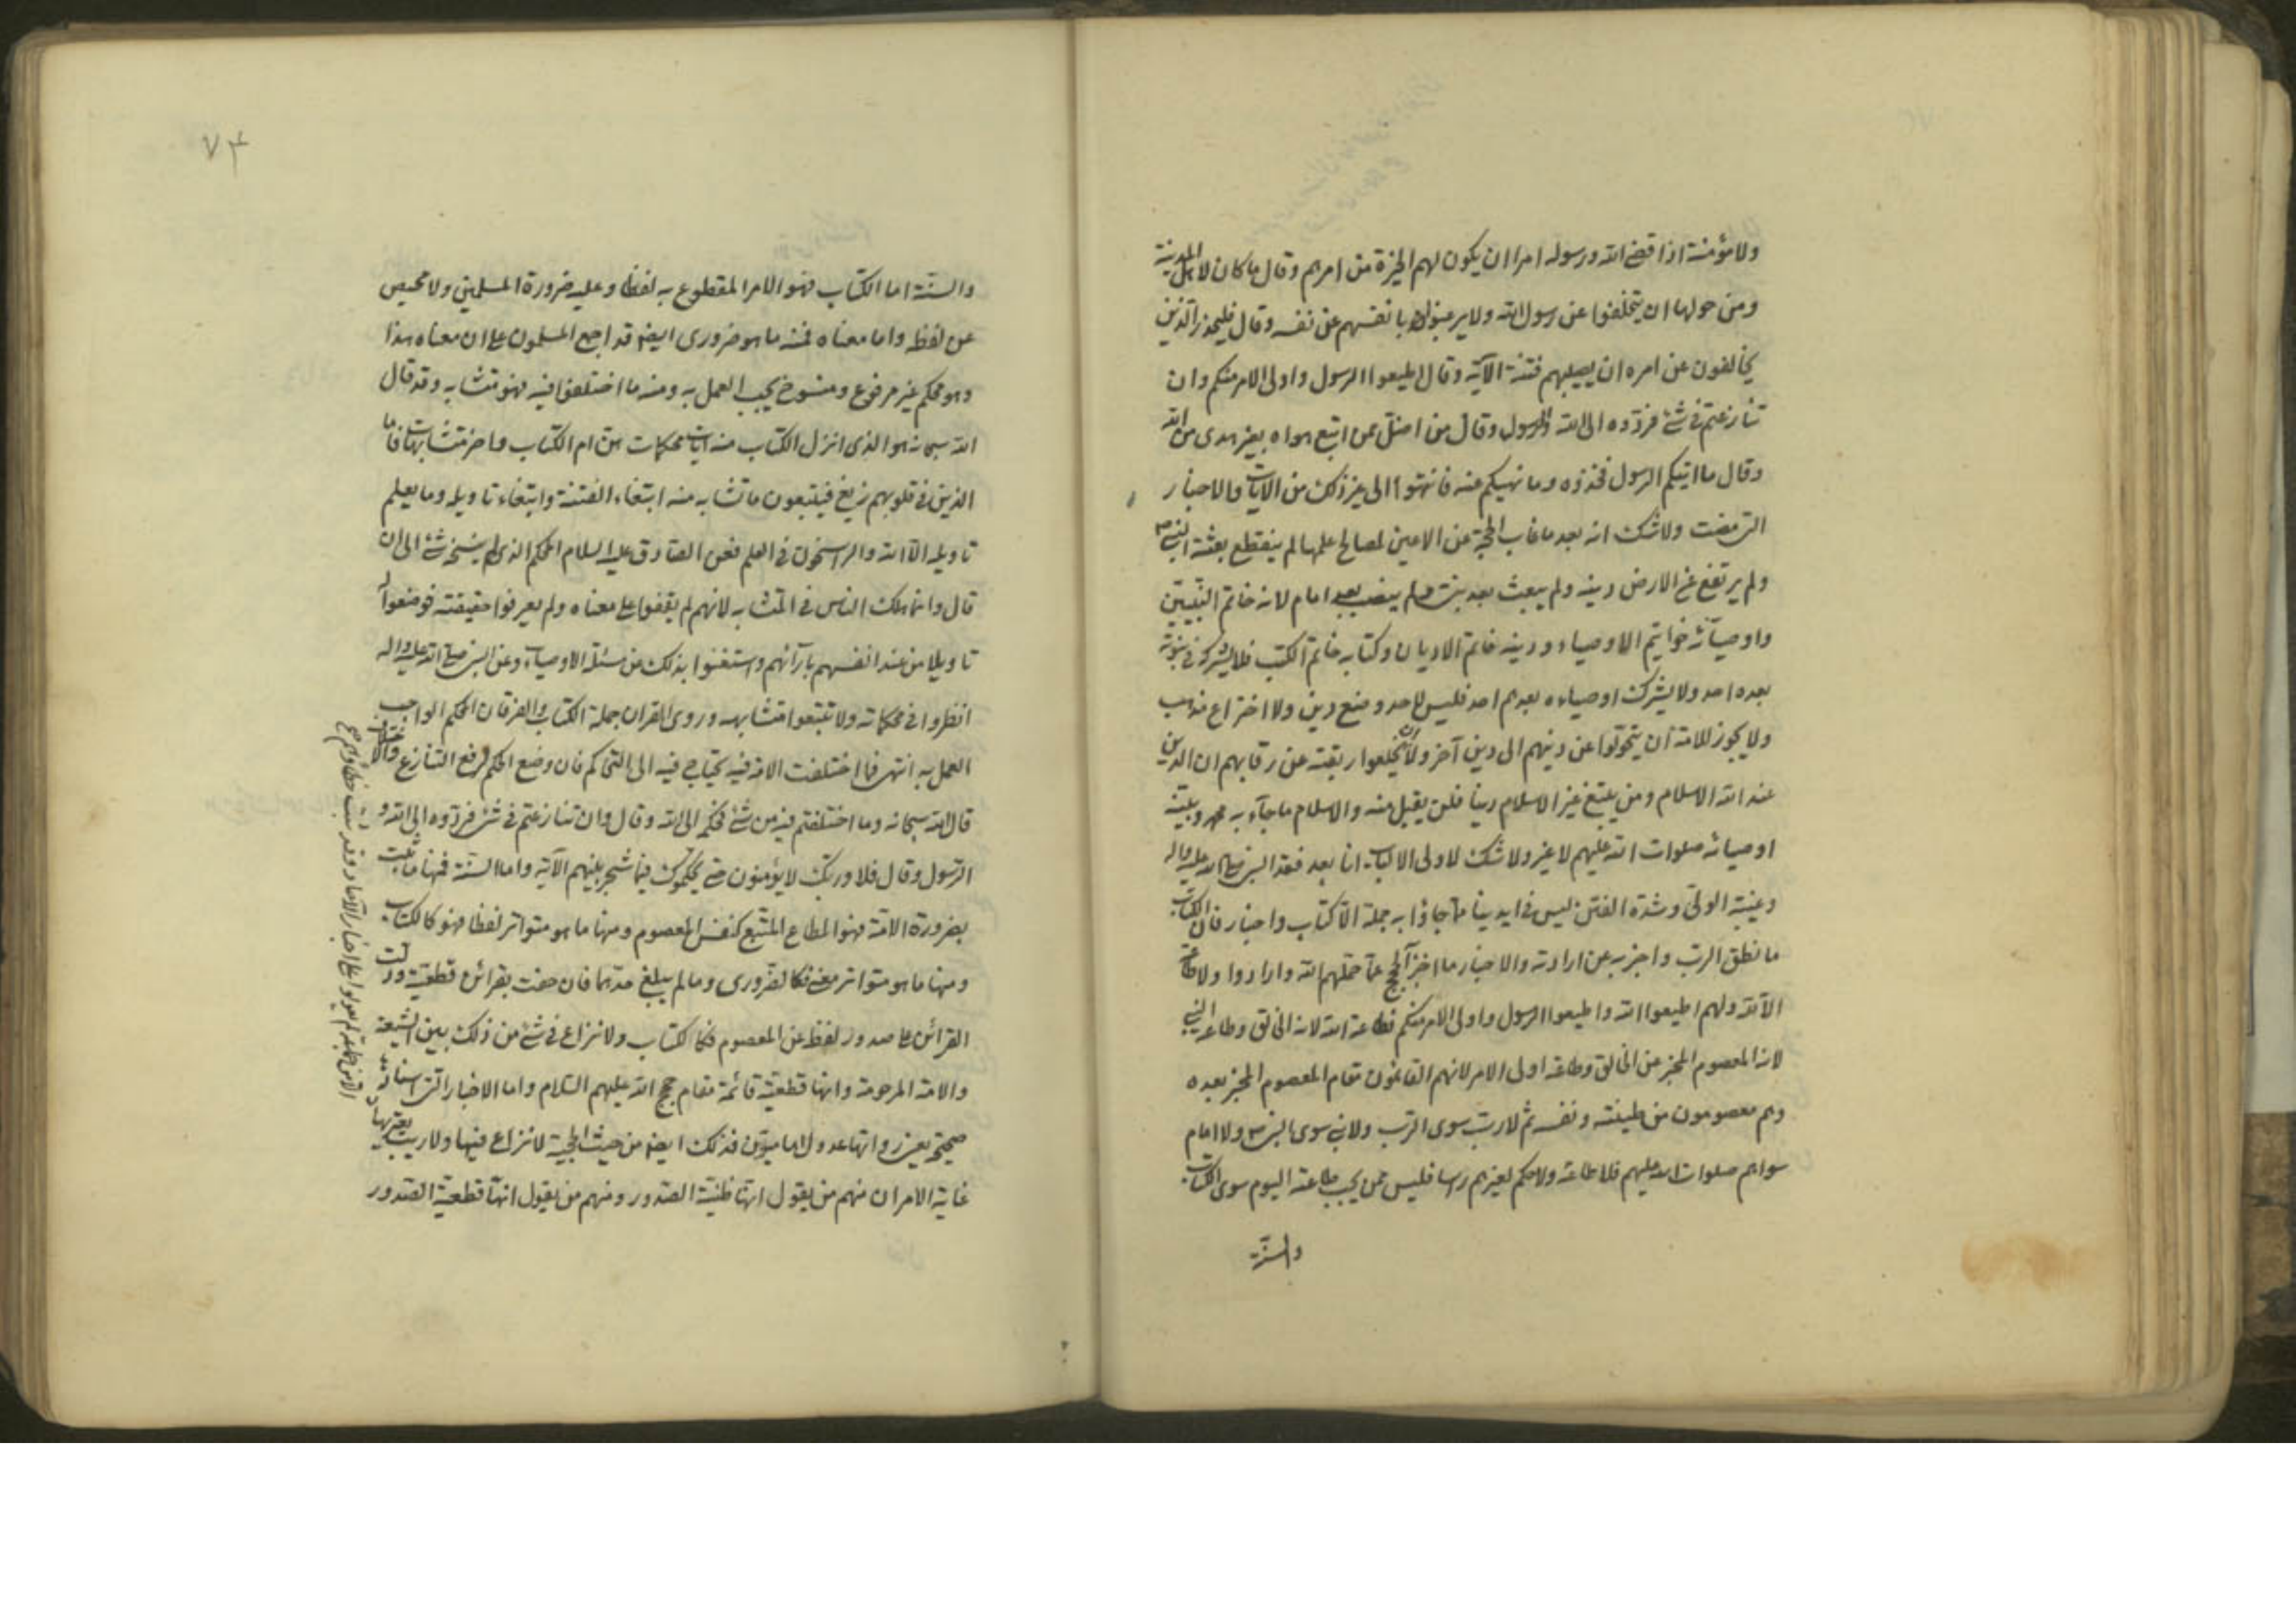 ولا مؤمنة اذا قضى الله ورسوله امرا ان يكون لهم الخيرة من امرهم وقال ما كان لاهل المدينة
ومن حولها ان يتخلفوا عن رسول الله ولا يرغبوا بانفسهم عن نفسه وقال فليحذر الذين
يخالفون عن امره ان يصيبهم فتنة الآية وقال اطيعوا الرسول واولى الامر منكم وان
تنازعتم فى شئ فردّوه الى الله والرسول وقال من اضلّ ممن اتبع هواه بغير هدى من الله
وقال ما اتيكم الرسول فخذوه وما نهيكم عنه فانتهوا الى غير ذلك من الآيات والاخبار
التى مضت ولا شك انه بعد ما غاب الحجة عن الاعين لمصالح علمها لم ينقطع بعثة النبى ص
ولم يرتفع عن الارض دينه ولم يبعث بعد نبى ولم ينصب بعده امام لانه خاتم النبيّين
واوصيآئه خواتيم الاوصياء ودينه خاتم الاديان وكتابه خاتم الكتب فلا يشركه فى نبوته
بعده احد ولا يشرك اوصياءه بعدهم احد فليس لاحد وضع دين ولا اختراع مذهب
ولا يجوز للامة ان يتحولوا عن دينهم الى دين آخر ولا ان يخلعوا ربقته عن رقابهم ان الدين
عند الله الاسلام ومن يبتغ غير الاسلام دينا فلن يقبل منه والاسلام ما جآء به محمد وبيّنه
اوصيائه صلوات الله عليهم لا غير ولا شك لاولى الالباب انا بعد فقد النبى صلى الله عليه واله
وغيبة الولىّ وشدة الفتن ليس فى ايدينا مما جاؤا به جملة الّا كتاب واخبار فان الكتاب
ما نطق الرب واخبر به عن ارادته والاخبار ما اخبر الحجج عمّا حمّلهم الله وارادوا ولا طاعة
الّا لله ولهم اطيعوا الله واطيعوا الرسول واولى الامر منكم فطاعة الله لانه الخالق وطاعة النبى
لانه المعصوم المخبر عن الخالق وطاعة اولى الامر لانهم القائمون مقام المعصوم المخبر بعده
وهم معصومون من طينته ونفسه ثم لا ربّ سوى الرّب ولا نبى سوى النبى ص ولا امام
سواهم صلوات الله عليهم فلا طاعة ولا حكم لغيرهم راسا فليس ممن يجب طاعته اليوم سوى الكتاب
والسنّة
٧٤
والسنّة اما الكتاب فهو الامر المقطوع به لفظا وعليه ضرورة المسلمين ولا محيص
عن لفظه واما معناه فمنه ما هو ضرورى ايضا قد اجمع المسلمون على ان معناه هذا
وهو محكم غير مرفوع ومنسوخ يجب العمل به ومنه ما اختلفوا فيه فهو متشابه وقد قال
الله سبحانه هو الذى انزل الكتاب منه ايات محكمات هن ام الكتاب واخر متشابهات فاما
الذين فى قلوبهم زيغ فيتبعون ما تشابه منه ابتغاء الفتنة وابتغاء تاويله وما يعلم
تاويله الّا الله والراسخون فى العلم فعن الصادق عليه السلام المحكم الذى لم ينسخه شئ الى ان
قال وانما هلك الناس فى المتشابه لانهم لم يقفوا على معناه ولم يعرفوا حقيقته فوضعوا له
تاويلا من عند انفسهم بآرآئهم واستغنوا بذلك عن مسئلة الاوصياء وعن النبى صلى الله عليه واله
انظروا فى محكماته ولا تتبعوا متشابهه وروى القران جملة الكتاب والفرقان المحكم الواجب
العمل به انتهى فما اختلفت الامة فيه يحتاج فيه الى التحاكم فان وضع الحكم لرفع التنازع والاختلاف
قال الله سبحانه وما اختلفتم فيه من شئ فحكمه الى الله وقال وان تنازعتم فى شئ فردّوه الى الله و
الرسول وقال فلا وربّك لا يؤمنون حتى يحكموك فيما شجر بينهم الآية واما السنّة فمنها ما ثبت
بضرورة الامّة فهو المطاع المتّبع كنفس المعصوم ومنها ما هو متواتر لفظا فهو كالكتاب
ومنها ما هو متواتر معنى فكالضّرورى وما لم يبلغ حدّهما فان حفت بقرائن قطعيّة ودلّت
القرائن على صدور لفظ عن المعصوم فكالكتاب ولا نزاع فى شئ من ذلك بين الشيعة
والامة المرحومة وانها قطعيّة قائمة مقام حجج الله عليهم السّلام واما الاخبار التى اسنادها
صحيحة يعنى رواتها عدول اماميّون فذلك ايضا من حيث الحجية لا نزاع فيها ولا ريب يعتريها
غاية الامر ان منهم من يقول انها ظنيّة الصّدور ومنهم من يقول انها قطعيّة الصّدور